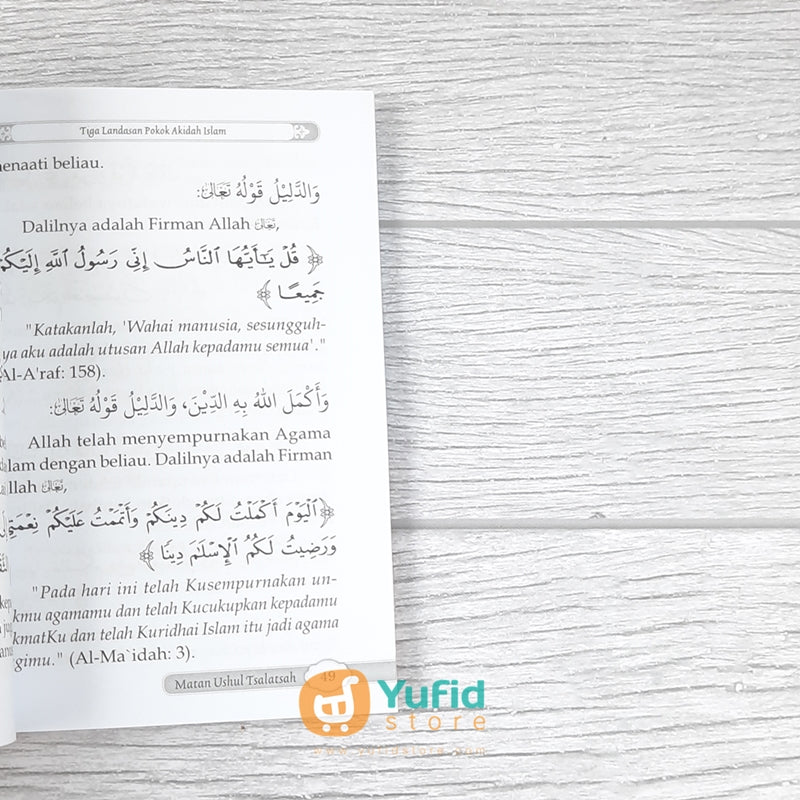 Tiga Landasan Pokok Akidah Islam
enaati beliau.
وَالدَّلِيْلُ قَوْلُهُ تَعَالَى:
Dalilnya adalah Firman Allah تَعَالَى,
﴿ قُلْ يَٰٓأَيُّهَا ٱلنَّاسُ إِنِّى رَسُولُ ٱللَّهِ إِلَيْكُمْ
جَمِيعًا ﴾
"Katakanlah, 'Wahai manusia, sesungguh-
ya aku adalah utusan Allah kepadamu semua'."
Al-A'raf: 158).
وَأَكْمَلَ اللهُ بِهِ الدِّيْنَ، وَالدَّلِيْلُ قَوْلُهُ تَعَالَى:
Allah telah menyempurnakan Agama
lam dengan beliau. Dalilnya adalah Firman
llah تَعَالَى,
﴿ ٱلْيَوْمَ أَكْمَلْتُ لَكُمْ دِينَكُمْ وَأَتْمَمْتُ عَلَيْكُمْ نِعْمَتِى
وَرَضِيتُ لَكُمُ ٱلْإِسْلَٰمَ دِينًا ﴾
"Pada hari ini telah Kusempurnakan un-
kmu agamamu dan telah Kucukupkan kepadamu
kmatKu dan telah Kuridhai Islam itu jadi agama
gimu." (Al-Ma`idah: 3).
Matan Ushul Tsalatsah 49
Yufid
store
www.yufidstore.com